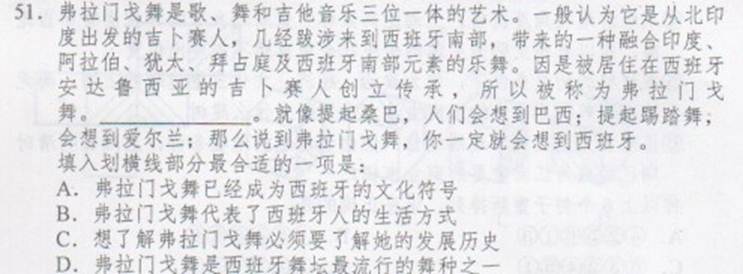 51. 弗拉门戈舞是歌、舞和吉他音乐三位一体的艺术。一般认为它是从北印
度出发的吉卜赛人，几经跋涉来到西班牙南部，带来的一种融合印度、
阿拉伯、犹太、拜占庭及西班牙南部元素的乐舞。因是被居住在西班牙
安达鲁西亚的吉卜赛人创立传承，所以被称为弗拉门戈
舞。__________。就像提起桑巴，人们会想到巴西；提起踢踏舞，
会想到爱尔兰；那么说到弗拉门戈舞，你一定就会想到西班牙。
填入划横线部分最合适的一项是：
A. 弗拉门戈舞已经成为西班牙的文化符号
B. 弗拉门戈舞代表了西班牙人的生活方式
C. 想了解弗拉门戈舞必须要了解她的发展历史
D. 弗拉门戈舞是西班牙舞坛最流行的舞种之一